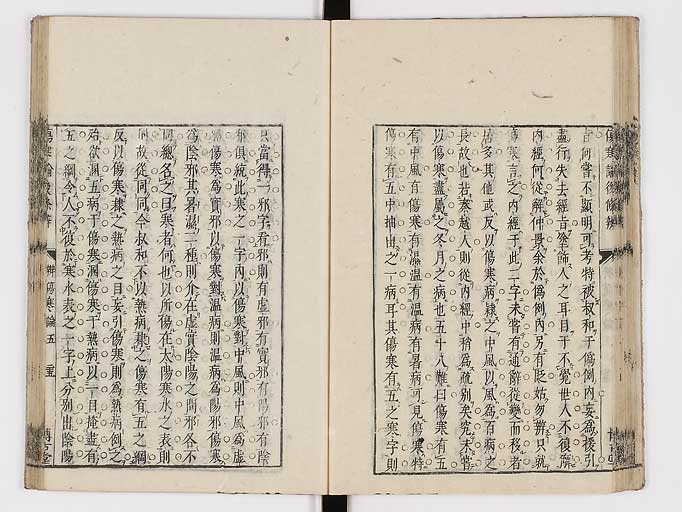 旨何嘗不顯明可考特被叔和于僞例內妄爲援引
盡行失去經旨塗飾人之耳目千不覺世人不復
內經何從解仲景余於僞例內另有貶姑勿辨只就
傷寒言之內經于此二字未嘗有通辭從變而移者
居多其他或反以傷寒病隸之中風以風爲百病之
長故也若秦越人則從內經中稍爲疏別矣究未嘗
以傷寒盡屬之冬月之病也五十八難曰傷寒有五
有中風有傷寒有濕溫有溫病有暑病可見傷寒特
傷寒有五中抽出之一病耳其傷寒有五之寒字則
只當得一邪字看邪則有虛邪有實邪有陽邪有陰
邪俱統此寒之一字內以傷寒對中風則中風爲虛
邪傷寒爲實邪以傷寒對溫病則溫病爲陽邪傷寒
爲陰邪其暑濕二種則介在虛實陰陽之間邪各不
同總名之曰寒者何也以所傷在太陽寒水之表則
同故從同同今叔和不以熱病隸之傷寒有五之綱
反以傷寒隸之熱病之目妄引傷寒則爲熱病例之
殆欲溷五病于傷寒溷傷寒于熱病以一目掩盡有
五之綱令人不復於寒水表之一字上分別出陰陽
傷寒論後條辨
辨傷寒論五